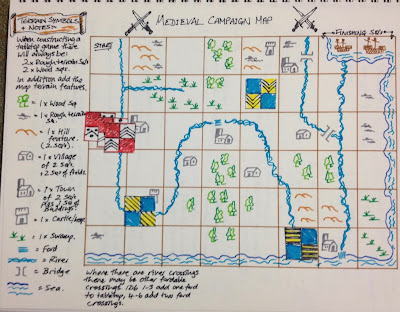 Terrain Symbols
+ Notes:
Medieval Campaign Map
When constructing a
tabletop game there
will always be:
2 x Rough terrain Sqs
2 x Wood Sqs.
In addition add the
map terrain features.
= 1 x Wood Sq.
= 1 x Rough terrain
Sq.
= 1 x Hill
feature.
(2 sqs).
= 1 x Village
of 2 sqs
+ 2 sqs of fields.
= 1 x Town
of 2 sqs
= 1 x Castle/keep.
= 1 x Swamp.
= Ford
= River
= Bridge
= Sea.
START
Finishing Sea
Where there are river crossings
there may be other fordable
crossings. 1D6 1-3 add one ford
to tabletop, 4-6 add two ford
crossings.